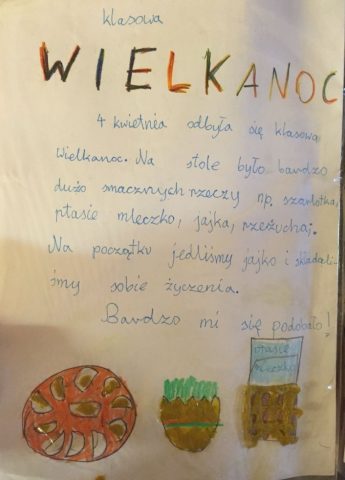 klasowa
WIELKANOC
4 kwietnia odbyła się klasowa
Wielkanoc. Na stole było bardzo
dużo smacznych rzeczy np. szarlotka,
ptasie mleczko, jajka, rzeżucha j.
Na początku jedliśmy jajko i składali-
śmy sobie życzenia.
Bardzo mi się podobało!
ptasie
mleczko